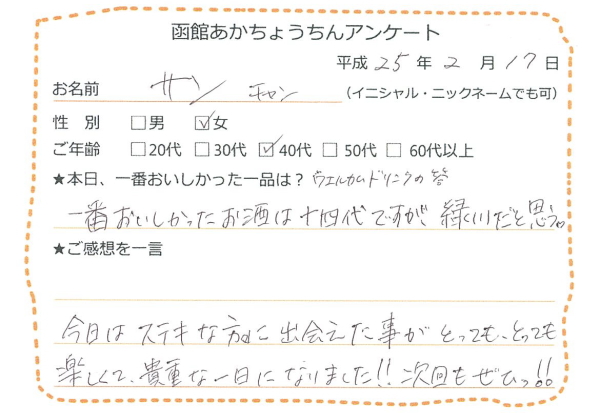 函館あかちょうちんアンケート
平成25年2月17日
お名前 サン チャン (イニシャル・ニックネームでも可)
性 別 □男 ☑女
ご年齢 □20代 □30代 ☑40代 □50代 □60代以上
★本日、一番おいしかった一品は? ウェルカムドリンクの答
一番おいしかったお酒は十四代ですが、緑川だと思う。
★ご感想を一言
今日はステキな方に出会えた事がとっても、とっても
楽しくて、貴重な一日になりました!!次回もぜひっ!!